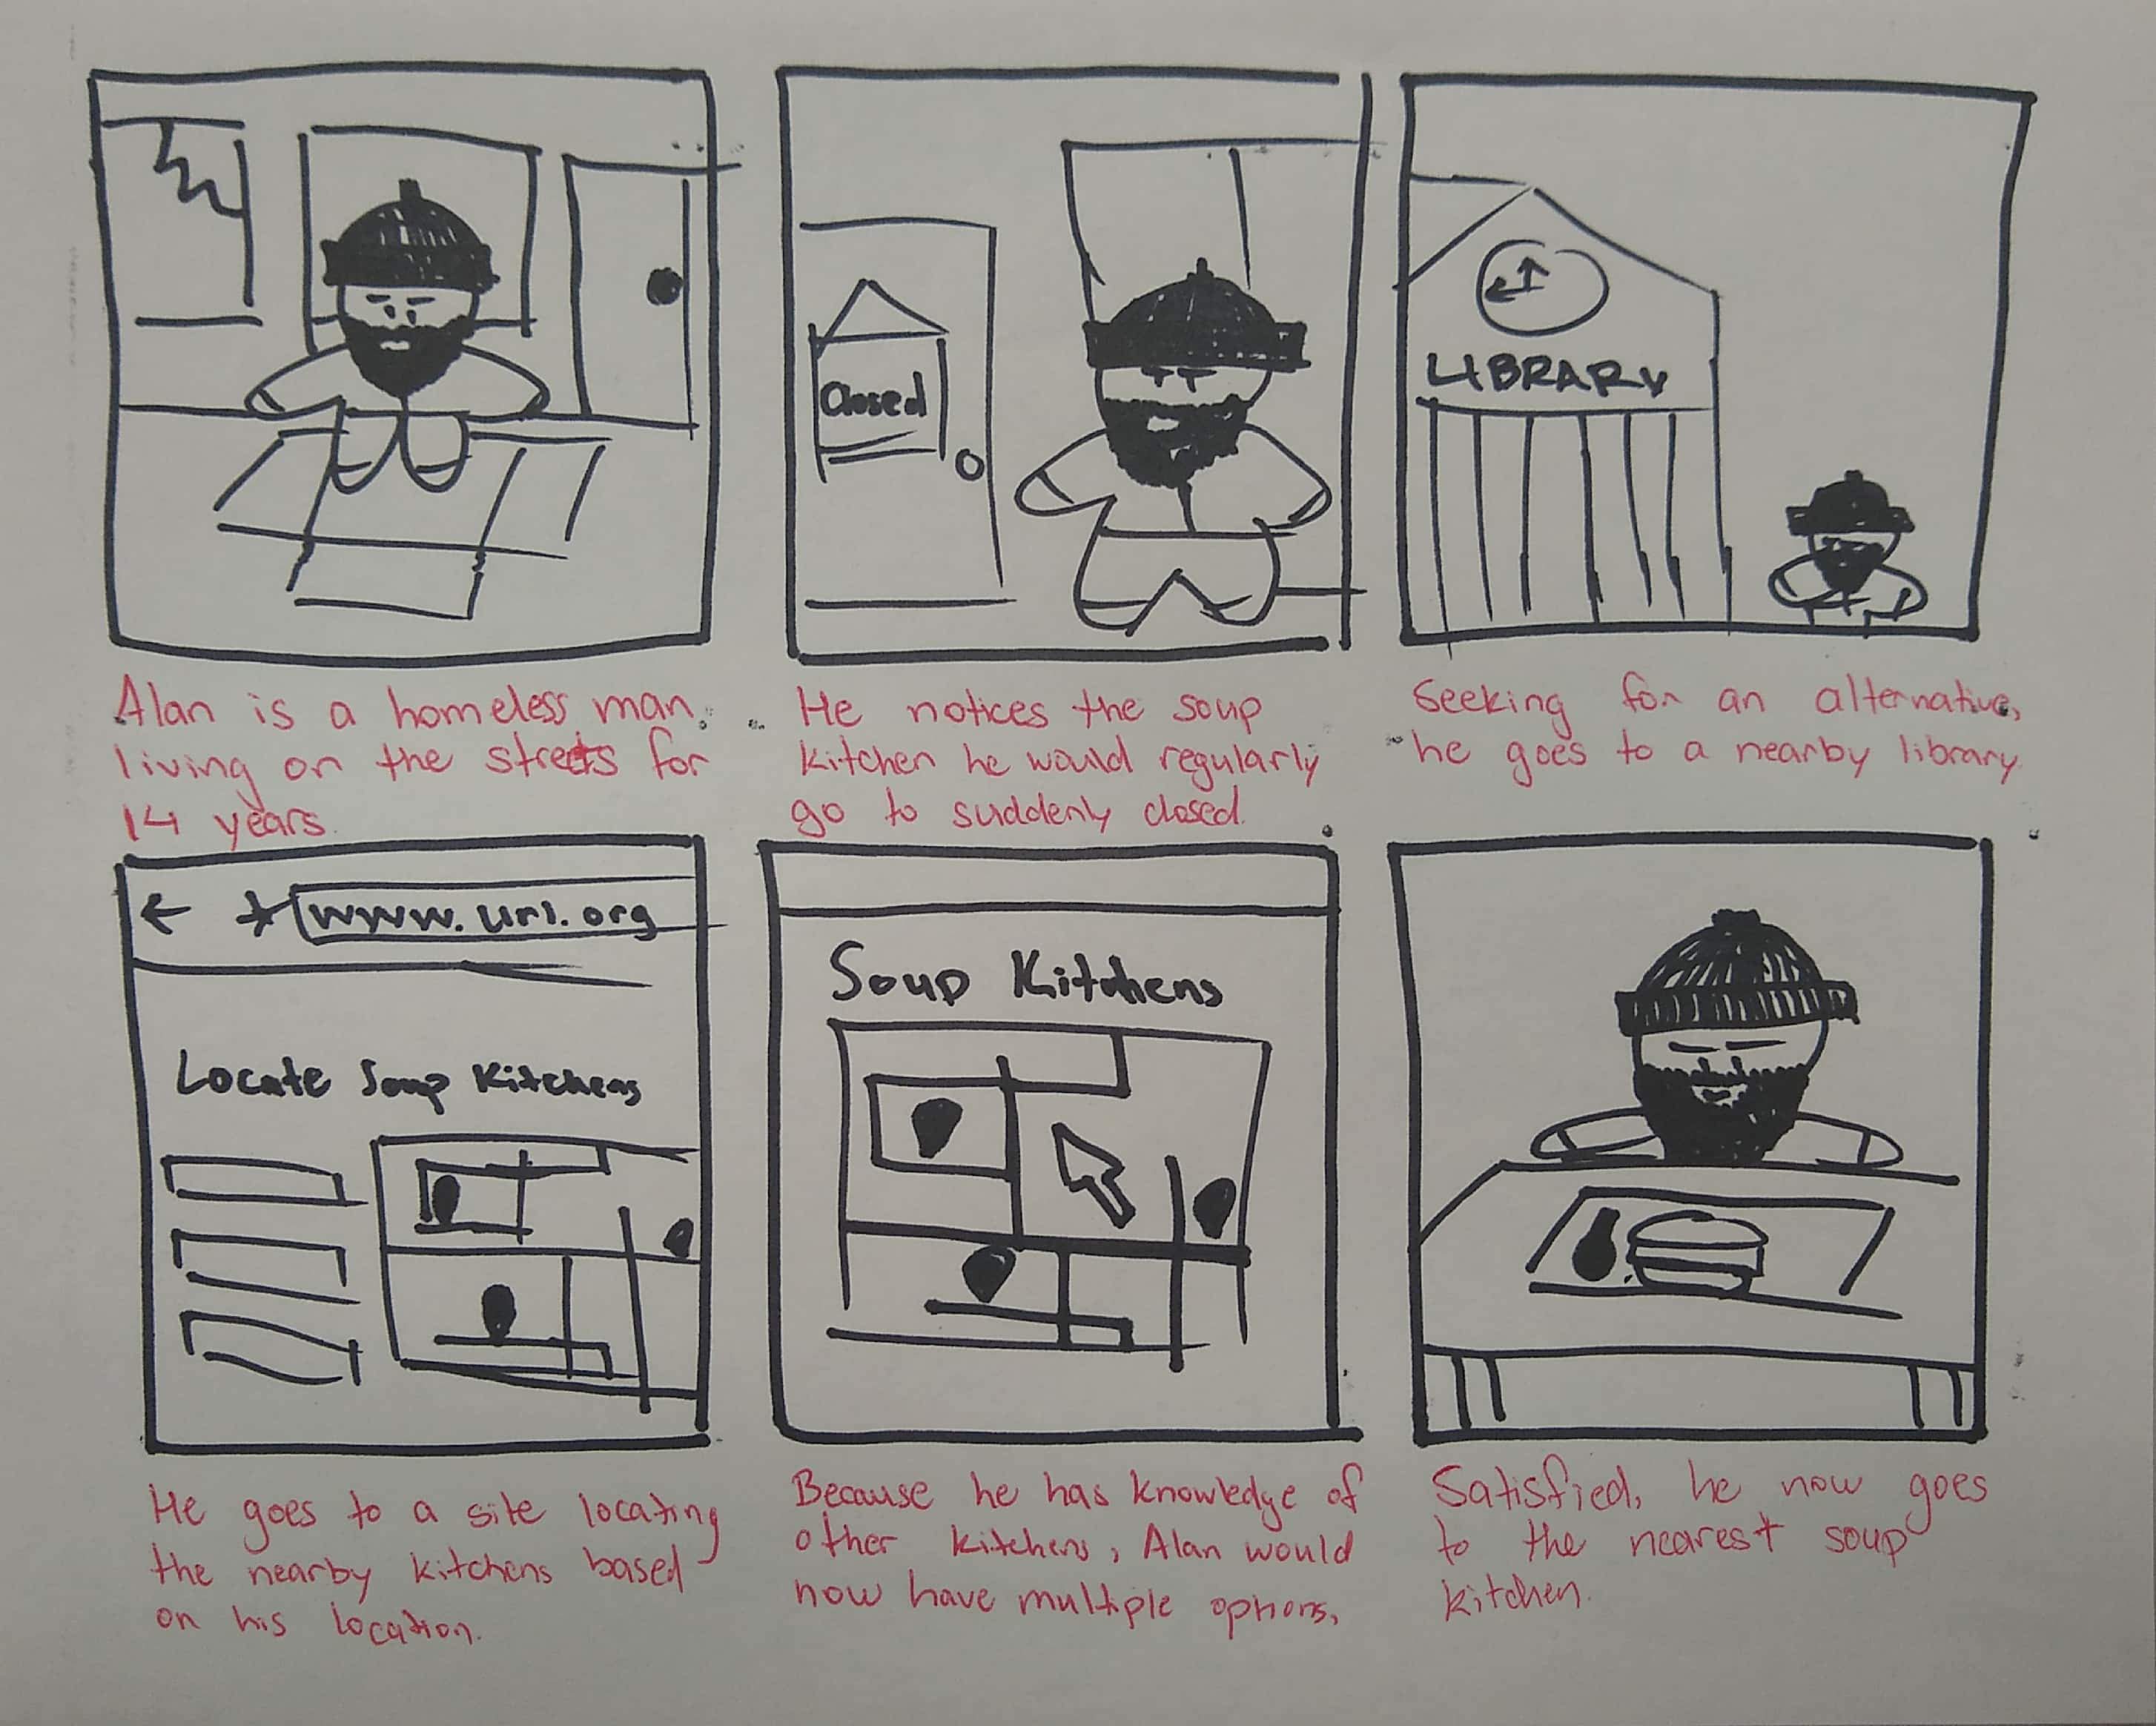 Closed
LIBRARY
Alan is a homeless man,
living on the streets for
14 years.
He notices the soup
kitchen he would regularly
go to suddenly closed.
Seeking for an alternative,
he goes to a nearby library.
www.url.org
Locate Soup Kitchens
Soup Kitchens
He goes to a site locating
the nearby kitchens based
on his location.
Because he has knowledge of
other kitchens, Alan would
now have multiple options.
Satisfied, he now goes
to the nearest soup
kitchen.